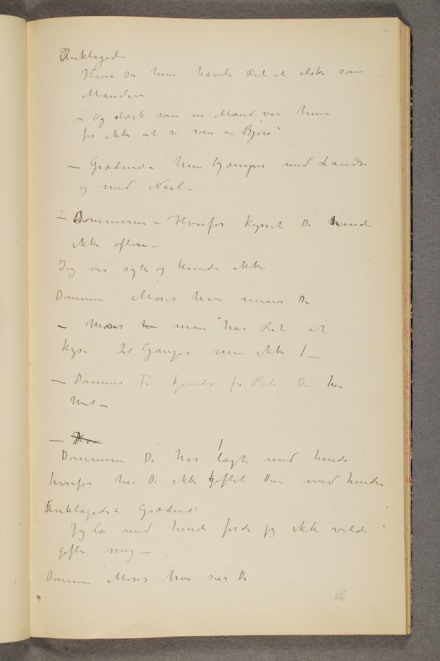 Anklagede
Hun sa hun havde Ret at elske som
Manden
– Og stærk som en Mand var hun
for ikke at si som en Bjørn
– Grædende hun kjæmper med Tænder
og med Negl –
– Dommeren – Hvorfor kysset De hende
ikke oftere –
Jeg var syk og kunde ikke
Dommer Moses hva mener De
– Moses man har Ret at
kysse 20 Gange men ikke 1 –
– Dommer for Ret De har
–
–
Dommeren De har lagt med hende
hvorfor har De ikke giftet Dem med hende
Anklagede Grædende
Jeg lå med hende fordi jeg ikke vilde
gifte mig –
Dommer Moses hva sier De